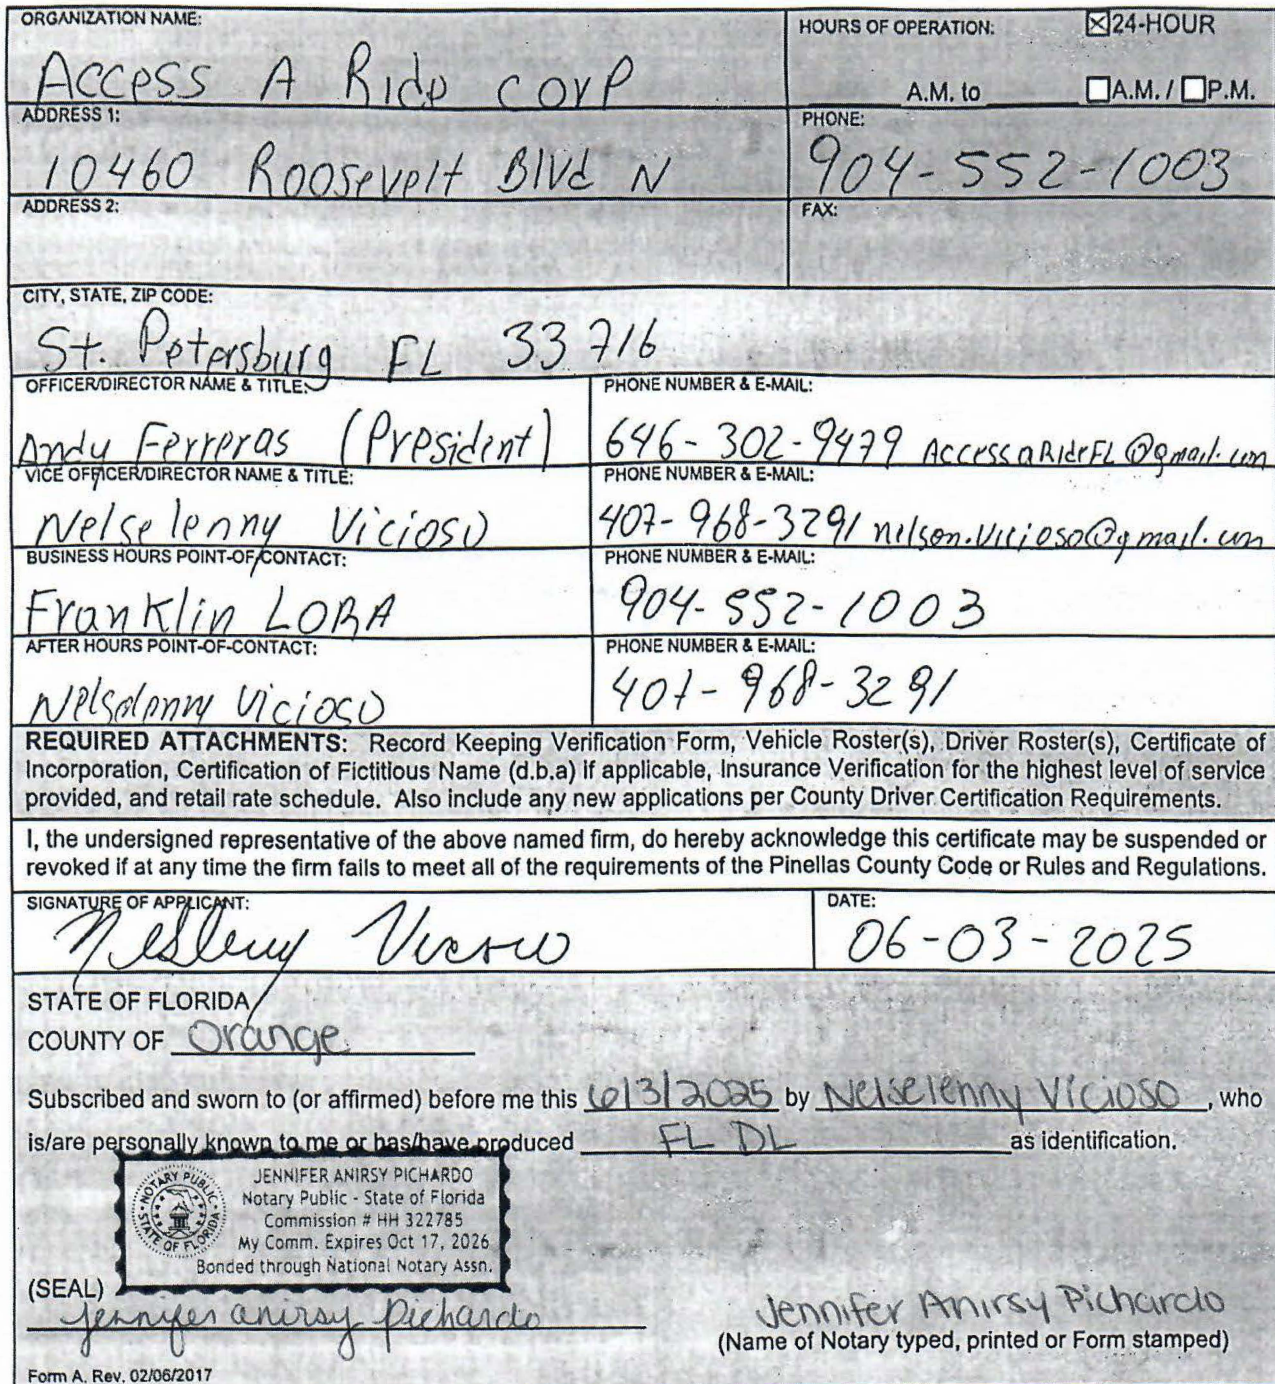 ORGANIZATION NAME:
Access A Ride corp
HOURS OF OPERATION: ☒24-HOUR
A.M. to ☐A.M. / ☐P.M.
ADDRESS 1:
10460 Roosevelt Blvd N
PHONE:
904-552-1003
ADDRESS 2:
FAX:
CITY, STATE, ZIP CODE:
St. Petersburg FL 33716
OFFICER/DIRECTOR NAME & TITLE:
Andy Ferreras (President)
PHONE NUMBER & E-MAIL:
646-302-9479 AccessaRideFL@gmail.com
VICE OFFICER/DIRECTOR NAME & TITLE:
Nelselenny Vicioso
PHONE NUMBER & E-MAIL:
407-968-3291 nelson.vicioso@gmail.com
BUSINESS HOURS POINT-OF-CONTACT:
Franklin LORA
PHONE NUMBER & E-MAIL:
904-552-1003
AFTER HOURS POINT-OF-CONTACT:
Nelselenny Vicioso
PHONE NUMBER & E-MAIL:
407-968-3291
REQUIRED ATTACHMENTS: Record Keeping Verification Form, Vehicle Roster(s), Driver Roster(s), Certificate of
Incorporation, Certification of Fictitious Name (d.b.a) if applicable, Insurance Verification for the highest level of service
provided, and retail rate schedule. Also include any new applications per County Driver Certification Requirements.
I, the undersigned representative of the above named firm, do hereby acknowledge this certificate may be suspended or
revoked if at any time the firm fails to meet all of the requirements of the Pinellas County Code or Rules and Regulations.
SIGNATURE OF APPLICANT:
DATE:
06-03-2025
STATE OF FLORIDA
COUNTY OF Orange
Subscribed and sworn to (or affirmed) before me this 6/3/2025 by Nelselenny Vicioso, who
is/are personally known to me or has/have produced FL DL as identification.
NOTARY PUBLIC
STATE OF FLORIDA
JENNIFER ANIRSY PICHARDO
Notary Public - State of Florida
Commission # HH 322785
My Comm. Expires Oct 17, 2026
Bonded through National Notary Assn.
(SEAL)
Jennifer anirsy Pichardo
Jennifer Anirsy Pichardo
(Name of Notary typed, printed or Form stamped)
Form A. Rev. 02/06/2017